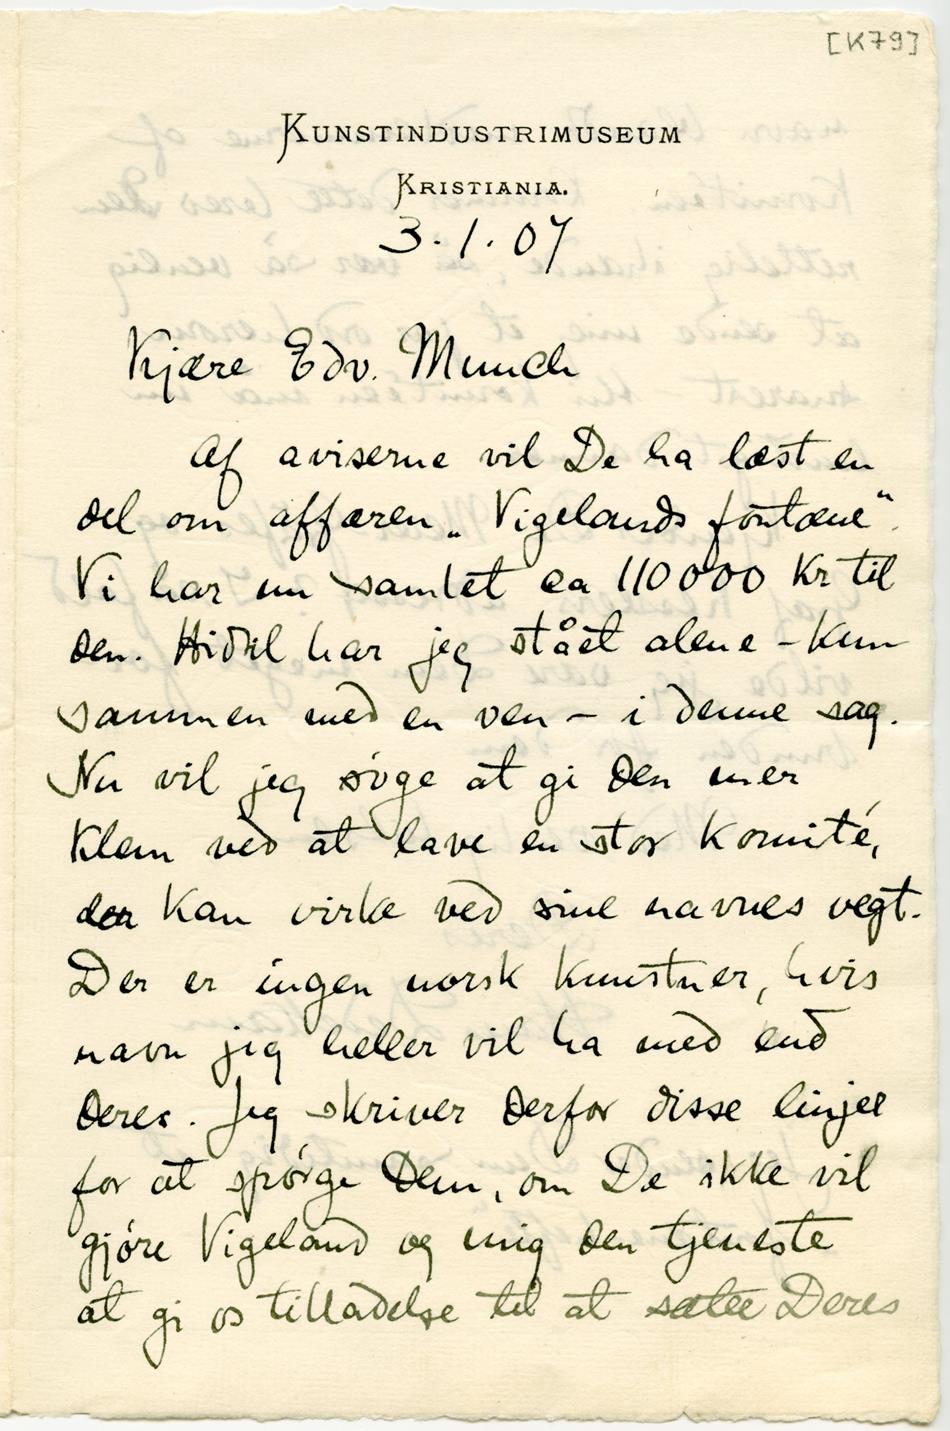 [K79]
KUNSTINDUSTRIMUSEUM
KRISTIANIA.
3.1.07
Kjære Edv. Munch
Af aviserne vil De ha læst en
del om affæren „Vigelands fontæne“.
Vi har nu samlet ca 110000 Kr til
den. Hidtil har jeg stået alene – kun
sammen med en ven – i denne sag.
Nu vil jeg søge at gi den mer
klem ved at lave en stor komité,
der kan virke ved sine navnes vegt.
Der er ingen norsk kunstner, hvis
navn jeg heller vil ha med end
Deres. Jeg skriver derfor disse linjer
for at spørge Dem, om De ikke vil
gjøre Vigeland og mig den tjeneste
at gi os tilladelse til at sætte Deres